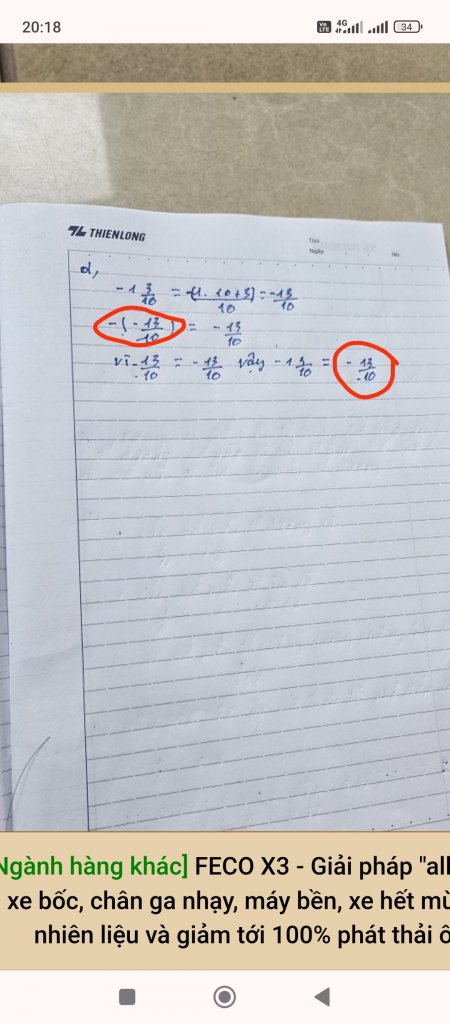 20:18
Vo LTE 4G 34
THIENLONG
Thứ
Ngày No.
d,
-1 3/10 = -(1.10+3)/10 = -13/10
-(-13/-10) = -13/10
vì -13/10 = -13/10 vậy -1 3/10 = -13/-10
Ngành hàng khác] FECO X3 - Giải pháp "all
xe bốc, chân ga nhạy, máy bền, xe hết mù
nhiên liệu và giảm tới 100% phát thải ô